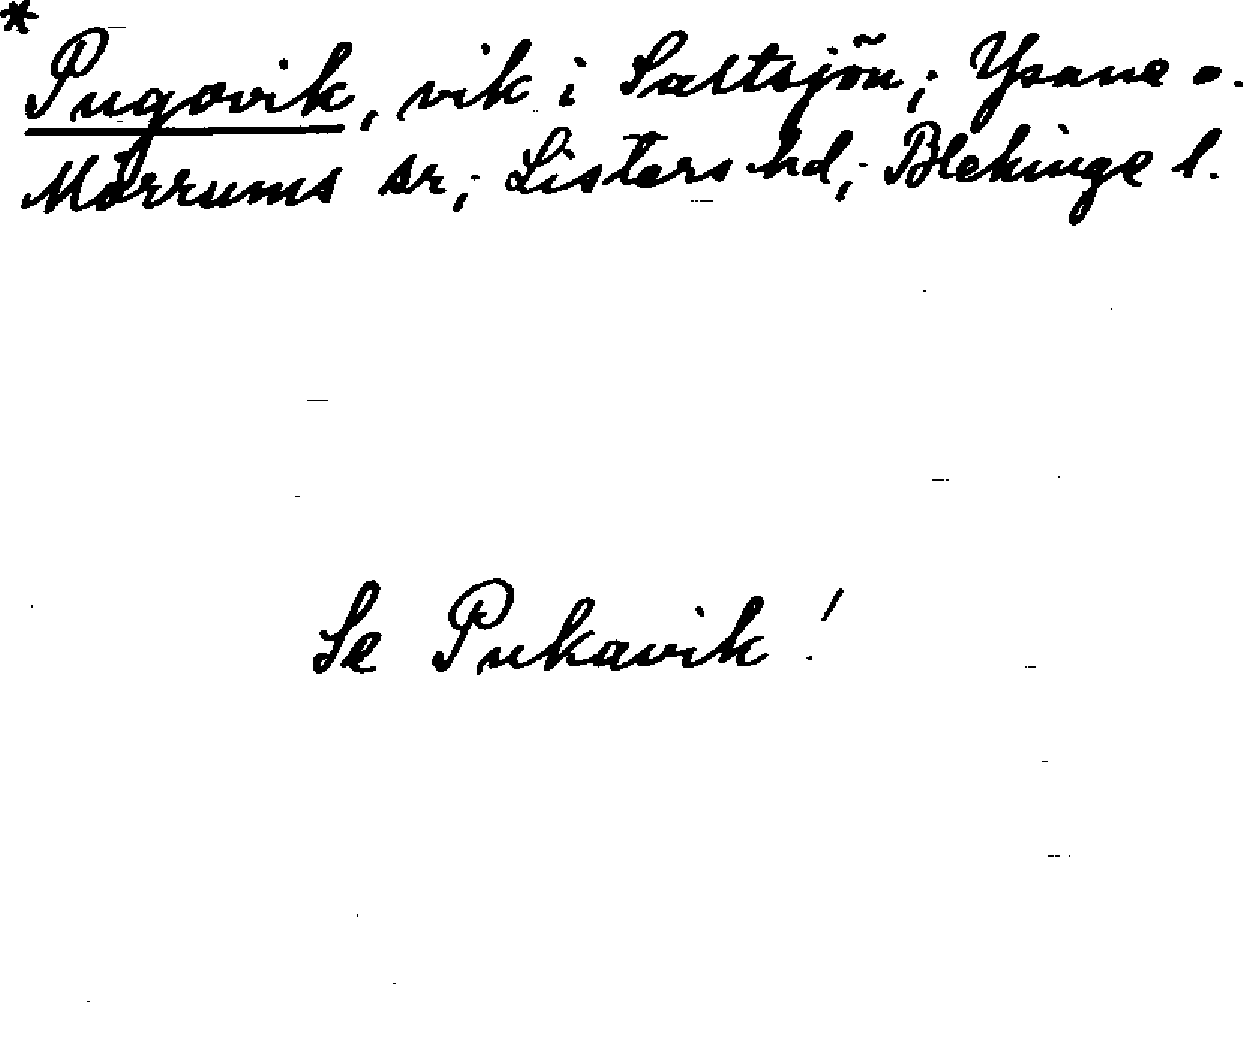 *
Pugovik, vik i Saltsjön; Ysane o.
Mörrums sr; Listers hd; Blekinge l.
Se Pukavik!